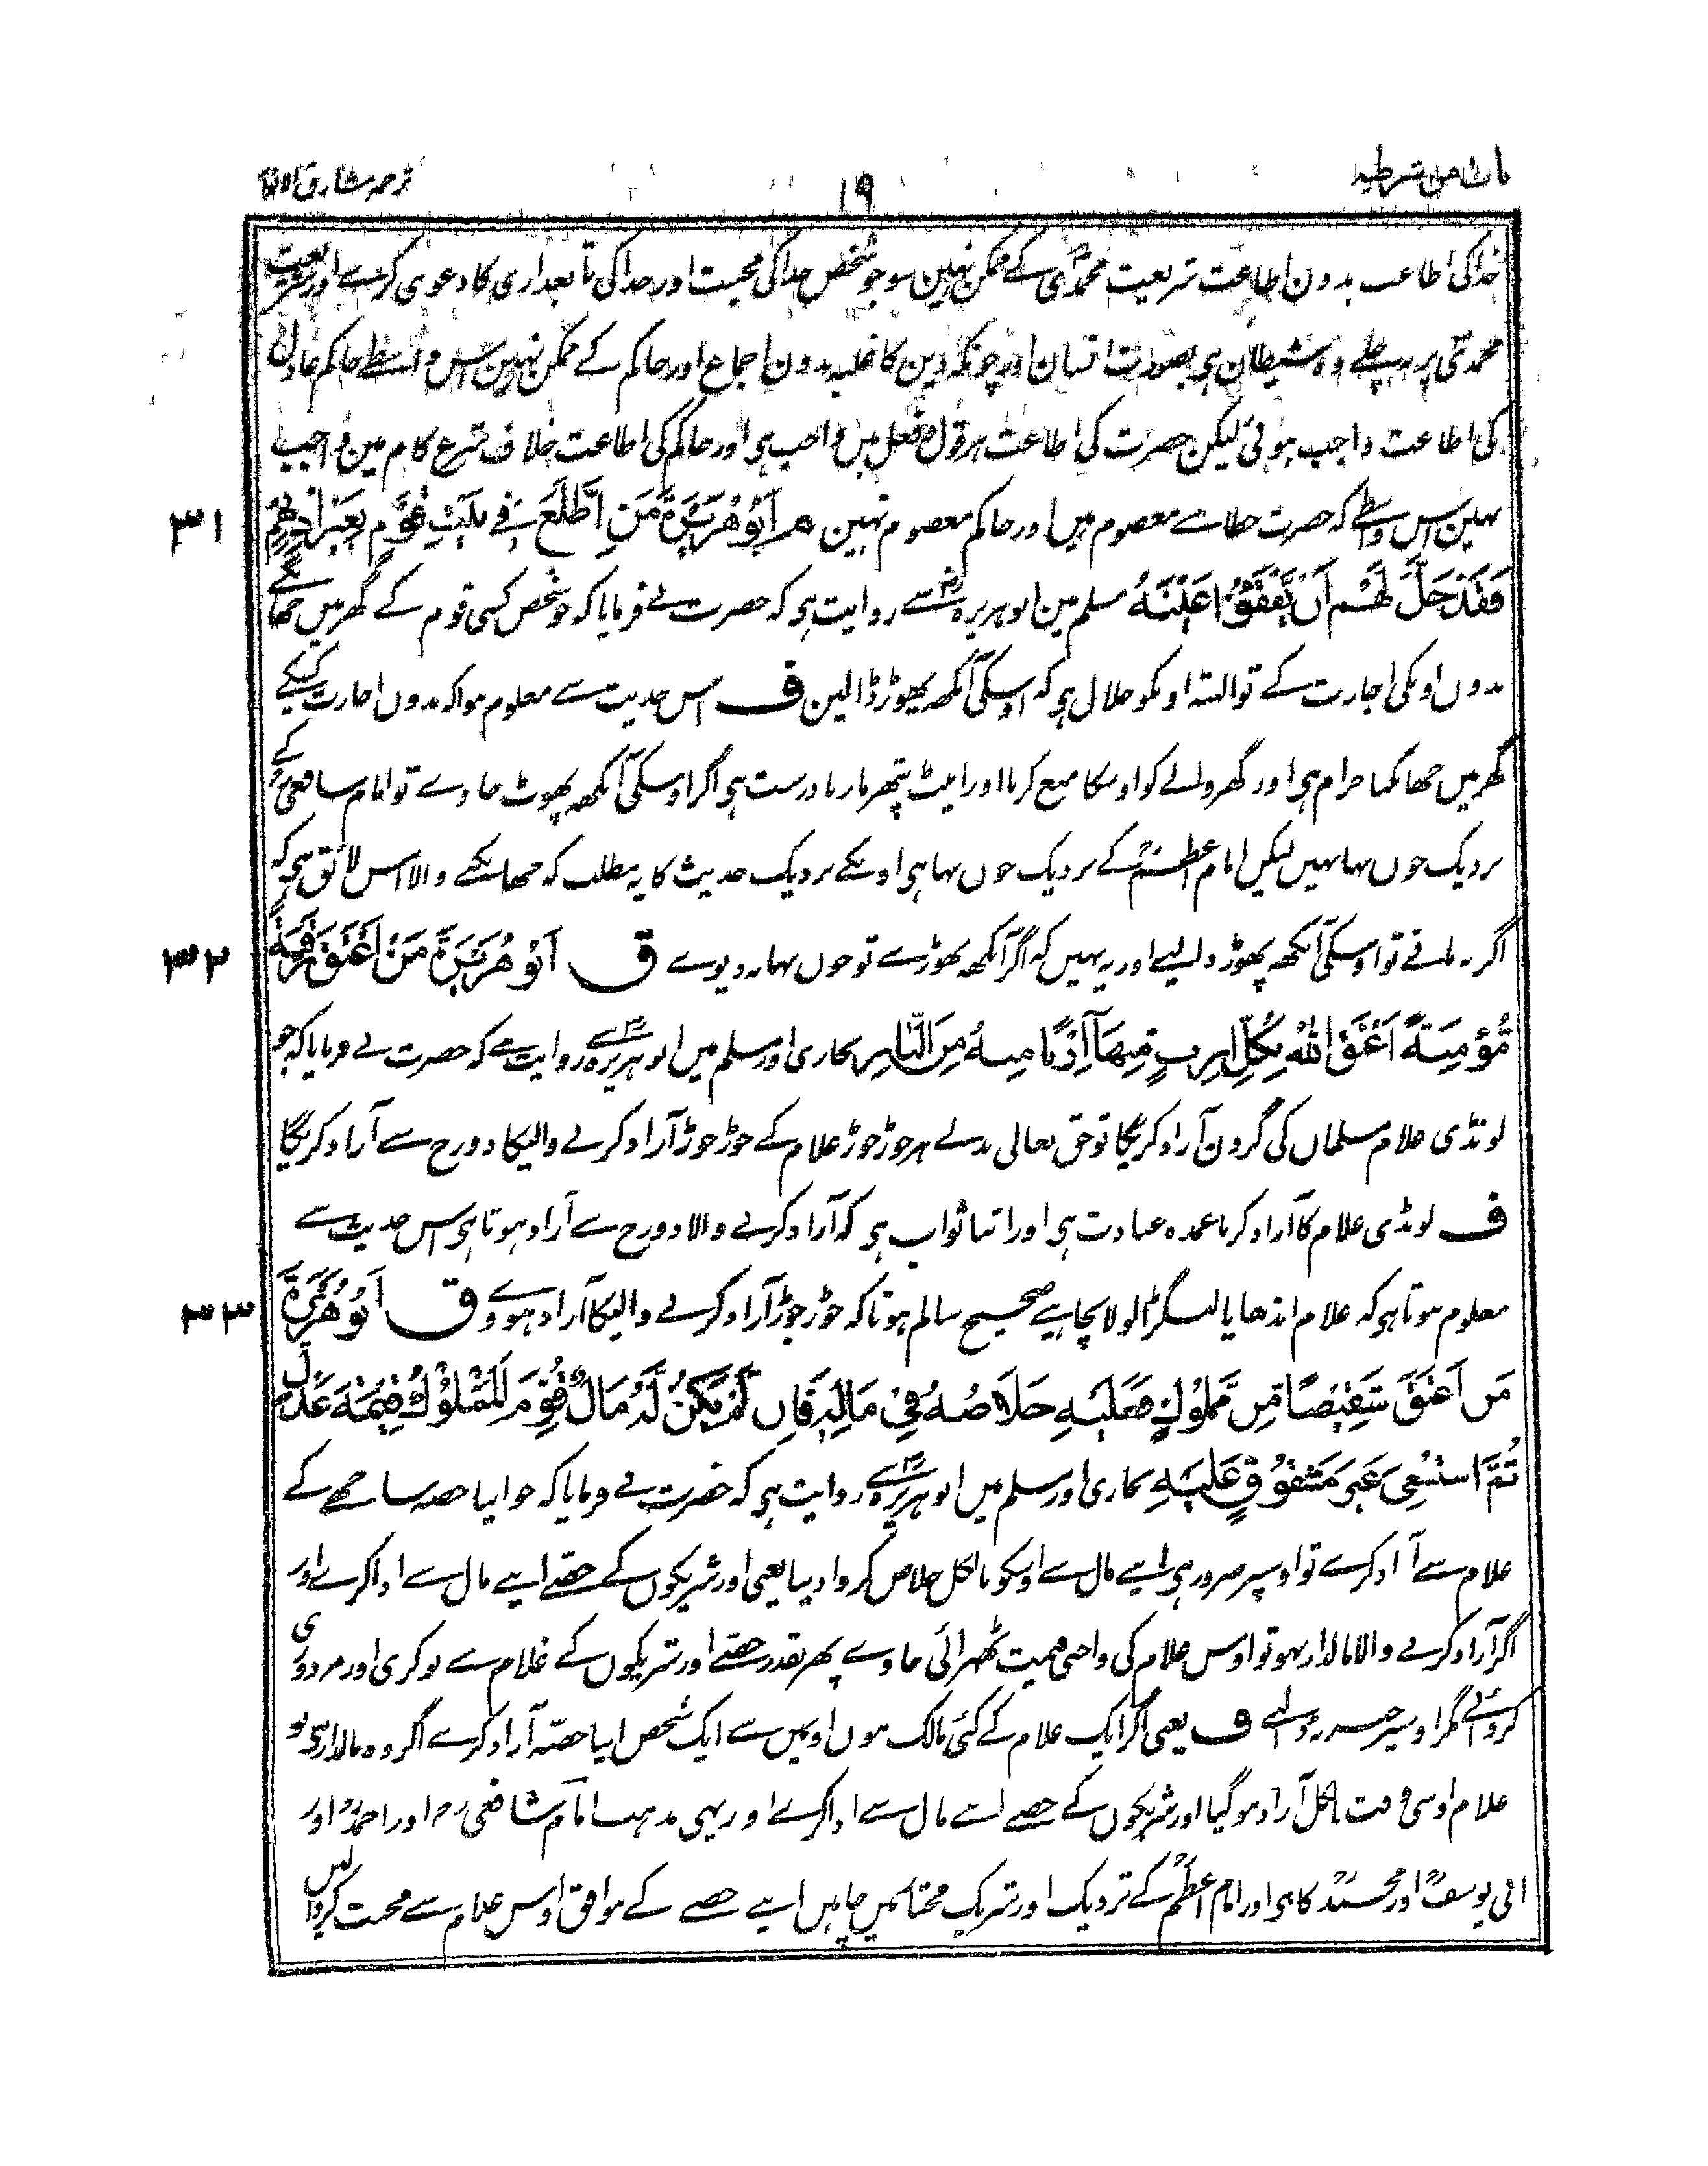 باب من شرطیہ ۱۹ ترجمہ مشارق الانوار
خدا کی اطاعت بدون اطاعت شریعت محمدی کے ممکن نہین سو جو شخص خدا کی محبت اور خدا کی تابعداری کا دعوی کرے اور شریعت
محمدی پر نہ چلے وہ شیطان ہی بصورت انسان اور چونکہ دین کا غلبہ بدون اجماع اور حاکم کے ممکن نہین اس واسطے حاکم عادل
کی اطاعت واجب ہوئی لیکن حضرت کی اطاعت ہر قول و فعل مین واجب ہی اور حاکم کی اطاعت خلاف شرع کام مین واجب
نہین اس واسطے کہ حضرت خطا سے معصوم ہیں اور حاکم معصوم نہین م اَبُوْ هُرَيْرَةَ مَنِ اطَّلَعَ فِيْ بَيْتِ قَوْمٍ بِغَيْرِ اِذْنِهِمْ ۳۱
فَقَدْ حَلَّ لَهُمْ اَنْ يَّفْقَؤُا عَيْنَهُ مسلم مین ابو ہریرہ رض سے روایت ہی کہ حضرت نے فرمایا کہ جو شخص کسی قوم کے گھر میں جھانکے
بدون اونکی اجازت کے تو البتہ اونکو حلال ہی کہ اوسکی آنکھ پھوڑ ڈالین ف اس حدیث سے معلوم ہوا کہ بدون اجازت کسیکے
گھر میں جھانکنا حرام ہی اور گھر والے کو اوسکا منع کرنا اور اینٹ پتھر مارنا درست ہی اگر اوسکی آنکھ پھوٹ جاوے تو امام شافعی کے
نزدیک خون بہا نہیں لیکن امام اعظم کے نزدیک خون بہا ہی اونکے نزدیک حدیث کا یہ مطلب کہ جھانکنے والا اس لائق ہی کہ
اگر نہ مانے تو اوسکی آنکھ پھوڑ ڈالیے اور یہ نہیں کہ اگر آنکھ پھوڑے تو خون بہا نہ دیوے ق اَبُوْ هُرَيْرَةَ مَنْ اَعْتَقَ رَقَبَةً ۳۲
مُّؤْمِنَةً اَعْتَقَ اللّٰهُ بِكُلِّ اِرْبٍ مِّنْهَا اِرْبًا مِنْهُ مِنَ النَّارِ بخاری اور مسلم میں ابو ہریرہ سے روایت ہے کہ حضرت نے فرمایا کہ جو
لونڈی غلام مسلمان کی گردن آزاد کریگا تو حق تعالی بدلے ہر جوڑ جوڑ غلام کے جوڑ جوڑ آزاد کرنے والیکا دوزخ سے آزاد کریگا
ف لونڈی غلام کا آزاد کرنا عمدہ عبادت ہی اور اتنا ثواب ہی کہ آزاد کرنے والا دوزخ سے آزاد ہوتا ہی اس حدیث سے
معلوم ہوتا ہی کہ غلام اندھا یا لنگڑا لولا نچاہیے صحیح سالم ہو تاکہ جوڑ جوڑ آزاد کرنے والیکا آزاد ہووے ق اَبُوْ هُرَيْرَةَ ۳۳
مَنْ اَعْتَقَ شَقِيْصًا مِّنْ مَّمْلُوْكٍ فَعَلَيْهِ خَلَاصُهُ فِيْ مَالِهِ فَاِنْ لَّمْ يَكُنْ لَّهُ مَالٌ قُوِّمَ الْمَمْلُوْكُ قِيْمَةَ عَدْلٍ
ثُمَّ اسْتُسْعِيَ غَيْرَ مَشْقُوْقٍ عَلَيْهِ بخاری اور مسلم میں ابو ہریرہ سے روایت ہی کہ حضرت نے فرمایا کہ جو اپنا حصہ ساجھے کے
غلام سے آزاد کرے تو اوسپر ضرور ہی اپنے مال سے اوسکو بالکل خلاص کروا دینا یعنی اور شریکوں کے حصے اپنے مال سے ادا کرے اور
اگر آزاد کرنے والا مالدار نہو تو اوس غلام کی واجبی قیمت ٹھہرائی جاوے پھر بقدر حصے اور شریکوں کے غلام سے نوکری اور مزدوری
کروائے مگر اوسپر جبر نہ ڈالے ف یعنی اگر ایک غلام کے کئی مالک ہوں اونمیں سے ایک شخص اپنا حصّہ آزاد کرے اگر وہ مالدار ہی تو
غلام اوسی وقت بالکل آزاد ہو گیا اور شریکوں کے حصے اپنے مال سے ادا کرے اور یہی مذہب امام شافعی رح اور احمد اور
ابی یوسف اور محمد کا ہی اور امام اعظم کے نزدیک اور شریک مختار ہیں چاہیں اپنے حصے کے موافق اوس غلام سے محنت کروا لیں